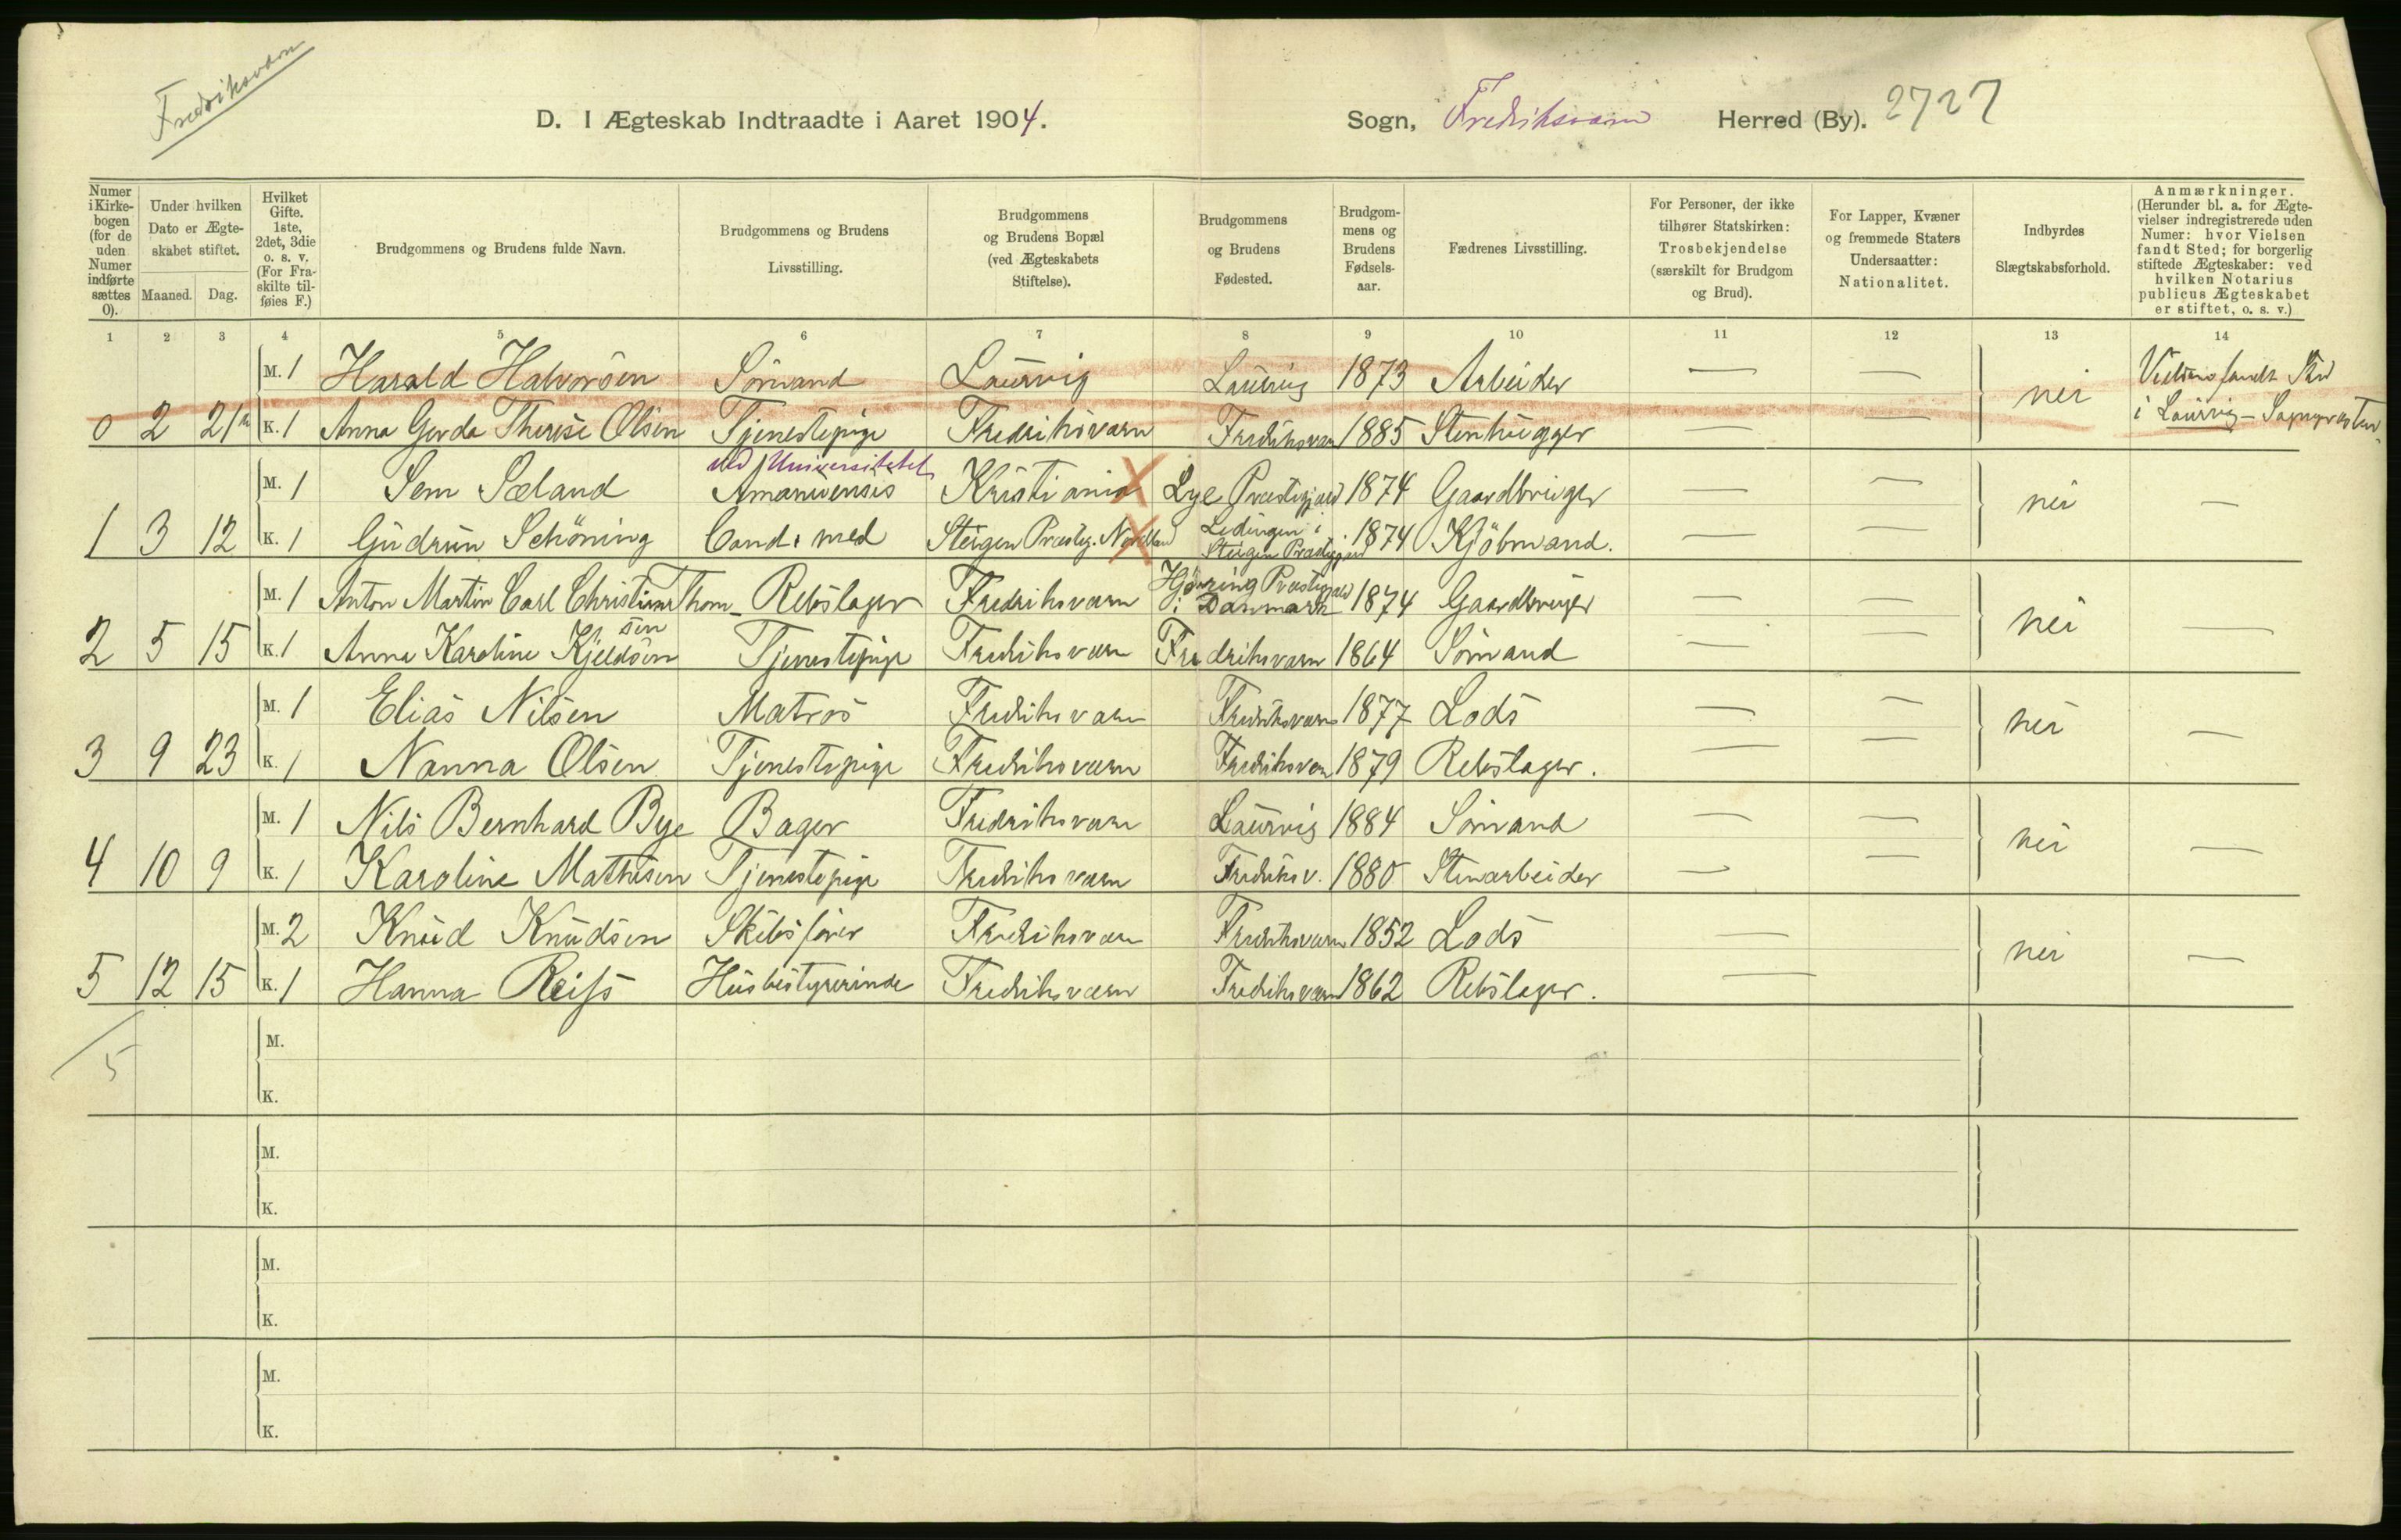 Fredriksværn
D. I Ægteskab Indtraadte i Aaret 1904.
Sogn, Fredriksværn Herred (By). 2727
Numer i Kirkebogen (for de uden Numer indførte sættes 0).
Under hvilken Dato er Ægteskabet stiftet.
Maaned. Dag.
Hvilket Gifte. 1ste, 2det, 3die o. s. v. (For Fraskilte tilføies F.)
Brudgommens og Brudens fulde Navn.
Brudgommens og Brudens Livsstilling.
Brudgommens og Brudens Bopæl (ved Ægteskabets Stiftelse).
Brudgommens og Brudens Fødested.
Brudgommens og Brudens Fødselsaar.
Fædrenes Livsstilling.
For Personer, der ikke tilhører Statskirken: Trosbekjendelse (særskilt for Brudgom og Brud).
For Lapper, Kvæner og fremmede Staters Undersaatter: Nationalitet.
Indbyrdes Slægtskabsforhold.
Anmærkninger. (Herunder bl. a. for Ægtevielser indregistrerede uden Numer: hvor Vielsen fandt Sted; for borgerlig stiftede Ægteskaber: ved hvilken Notarius publicus Ægteskabet er stiftet, o. s. v.)
1 2 3 4 5 6 7 8 9 10 11 12 13 14
M. 1 Harald Halvorsen Sömand Laurvig Laurvig 1873 Arbeider — — nei Vielsen fandt Sted
0 2 21 K. 1 Anna Gerda Therese Olsen Tjenestepige Fredriksværn Fredriksværn 1885 Stenhugger — — i Laurvig
ved Universitetet
M. 1 Sem Sæland Amanuensis Kristiania Lye Præstegjæld 1874 Gaardbruger — — nei —
1 3 12 K. 1 Gudrun Schöning Cand. med Steigen Præsteg. Nordland Ledingen i Steigen Præstegjæld 1874 Kjöbmand. — —
M. 1 Anton Martin Carl Christian Thom- Rebslager Fredriksværn Hjörring Præstegjæld i Danmark 1874 Gaardbruger — — nei —
sen
2 5 15 K. 1 Anna Karoline Kjeldsen Tjenestepige Fredriksværn Fredriksværn 1864 Sömand — —
M. 1 Elias Nilsen Matros Fredriksværn Fredriksværn 1877 Lods — — nei —
3 9 23 K. 1 Nanna Olsen Tjenestepige Fredriksværn Fredriksværn 1879 Rebslager. — —
M. 1 Nils Bernhard Bye Bager Fredriksværn Laurvig 1884 Sömand — — nei —
4 10 9 K. 1 Karoline Mathisen Tjenestepige Fredriksværn Fredriksv. 1880 Stenarbeider — —
M. 2 Knud Knudsen Skibsförer Fredriksværn Fredriksværn 1852 Lods — nei —
5 12 15 K. 1 Hanna Reiss Husbestyrerinde Fredriksværn Fredriksværn 1862 Rebslager. —
5
M.
K.
M.
K.
M.
K.
M.
K.